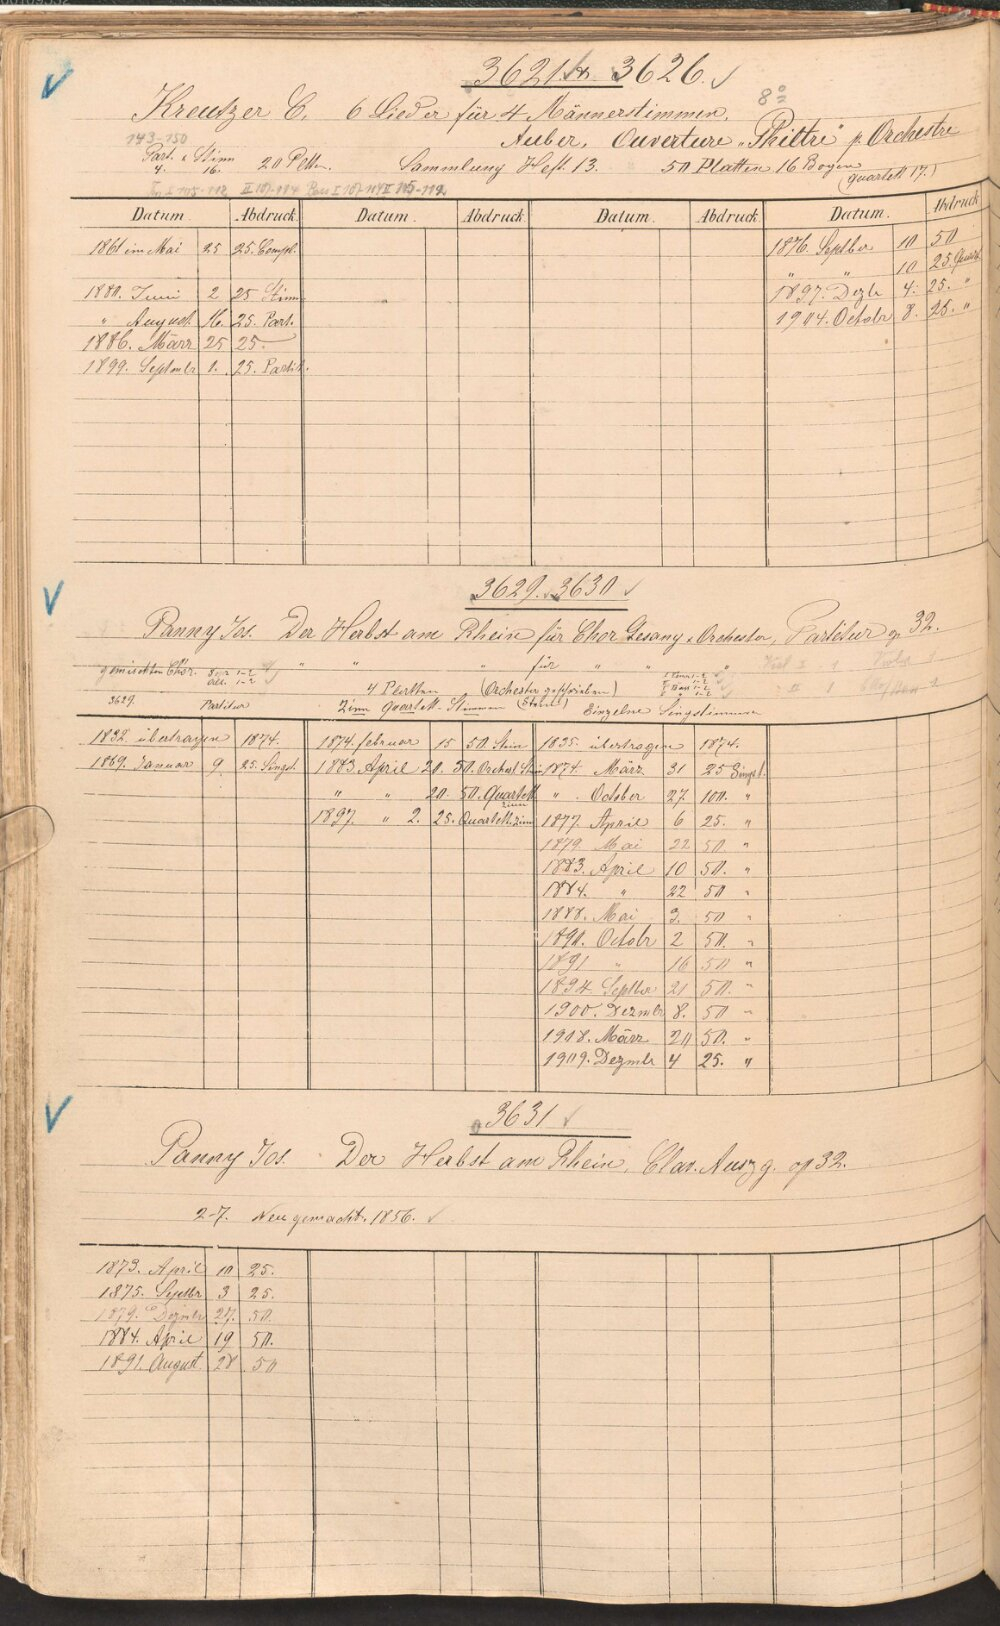 3621. & 3626.
8º
Kreutzer C. 6 Lieder für 4 Männerstimmen.
Auber, Ouverture "Philtre" p. Orchestre
143-150
Part. & Stim 20 Pltten. Sammlung Heft. 13. 50 Platten 16 Bogen
4. 16.
(Quartett 17.)
Datum. Abdruck. Datum. Abdruck. Datum. Abdruck. Datum. Abdruck.
1861 im Mai 25 25. Compl.
1876. Septber 10 50
" " 10 25. Quart.
1880. Juni 2 25 Stim
1897. Dezbr 4. 25. "
" August. 16. 25. Part.
1904. Octobr 8. 25. "
1886. März 25 25.
1899. Septembr 1. 25. Partit.
3629. 3630
Panny Jos. Der Herbst am Rhein für Chor Gesang & Orchester, Partitur op 32.
gemischten Chor. Sopr. 1-2 " " " für " " "
Alt. 1-2
I Tenor 1-2
II " 1-2
I Bass 1-2
II " 1-2
Viol I 1 Viola 1
" II 1
4 Plertten (Orchester geschrieben)
3629. Partitur Zinn Quartett-Stimmen (Stein) Einzelne Singstimmen
1832. übertragen 1874. 1874. februar 15 50. Stein 1835. übertragen 1874.
1869. Januar 9 25. Singst. 1883. April 20. 50. Orchest. Stein 1874. März 31 25 Singst.
" " 20. 50. Quartett zinn " October 27. 100. "
1897. " 2. 25. Quartett. zinn 1877. April 6 25. "
1879. Mai 22 50. "
1883. April 10 50. "
1884. " 22 50 "
1888. Mai 3. 50 "
1890. Octobr 2 50. "
1891 " 16 50 "
1894. Septber 21 50. "
1900. Dezmbr 8. 50 "
1908. März 20 50. "
1909. Dezmbr 4 25. "
3631
Panny Jos. Der Herbst am Rhein, Clav. Auszg. op 32.
2-7. Neu gemacht. 1856.
1873. April 10 25.
1875. Septbr 3 25.
1879. Dezmbr 27. 50.
1884. April 19 50.
1891. August. 28 50